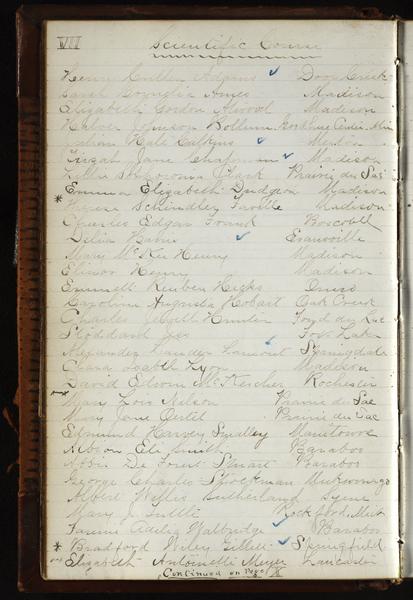 VII
Scientific Course
Henry Cullen Adams Door Creek
Sarah Ames Madison
Elizabeth Gordon Atwood Madison
Halvor Johnson
Hale Calkins
Jane Chapman Madison
Clark Prairie du Sac
Emma Elizabeth Dudgeon Madison
* Schindler Faville Madison
Charles Edgar Frank Boscobel
Delia Evansville
Mary McKee Henry Madison
Elinor Henry Madison
Emmett Reuben Hicks Omro
Caroline Augusta Hobart Oak Creek
Charles Hunter Fond du Lac
Stoddard Fox Lake
Alexander Lander Lamont Springdale
Clara Isabell Madison
David Edson McKercher Rochester
Mary Lois Nelson Prairie du Sac
Mary Jane Oertel Prairie du Sac
Edmund Harvey Smalley Manitowoc
Albion Eli Smith Baraboo
De Forest Stuart Baraboo
George Charles Stockman Mukwonago
Albert Willis Sutherland Syene
Mary J. Tuttle Rockford, Minn
Fannie Adelia Walbridge Baraboo
* Bradford Wiley Gillett Springfield
Elizabeth Antoinette Meyer Lancaster
Continued on Page X